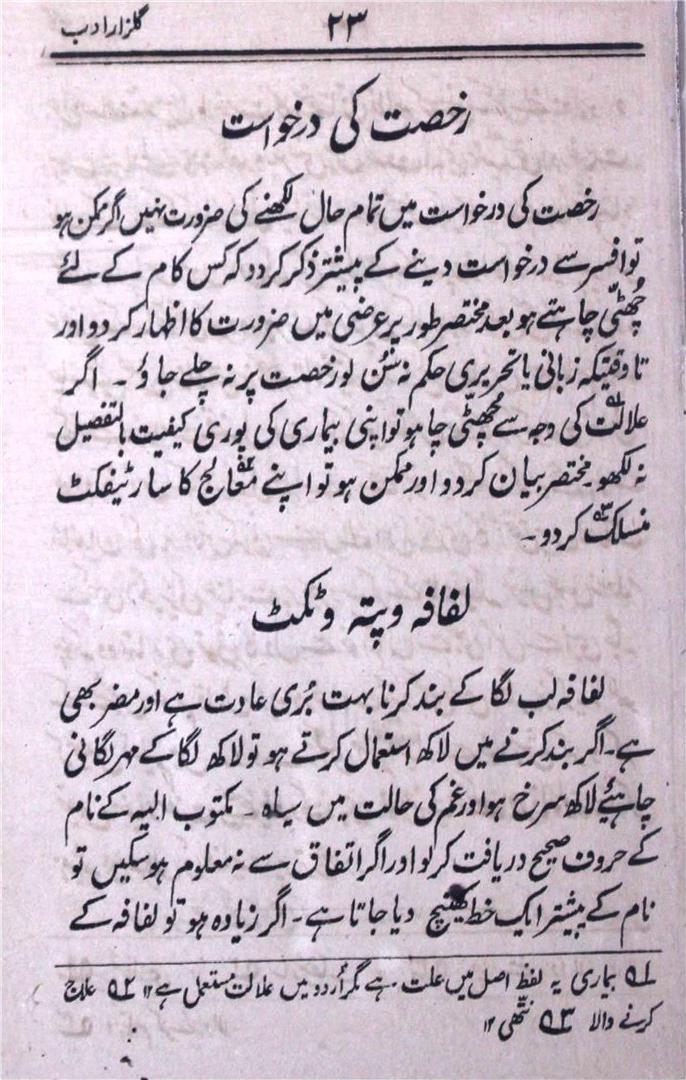 گلزار ادب
۲۳
رخصت کی درخواست
رخصت کی درخواست میں تمام حال لکھنے کی ضرورت نہیں اگر ممکن ہو
تو افسر سے درخواست دینے کے پیشتر ذکر کر دو کہ کس کام کے لئے
چُھٹی چاہتے ہو بعد مختصر طور پر عرضی میں ضرورت کا اظہار کر دو اور
تا وقتیکہ زبانی یا تحریری حکم نہ سُن لو رخصت پر نہ چلے جاؤ ۔ اگر
علالت۱ کی وجہ سے چُھٹی چاہو تو اپنی بیماری کی پوری کیفیت بالتفصیل
نہ لکھو۔ مختصر بیان کر دو اور ممکن ہو تو اپنے معالج۲ کا سارٹیفکٹ
منسلک۳ کر دو ۔
لفافہ و پتہ و ٹکٹ
لفافہ لب لگا کے بند کرنا بہت بُری عادت ہے اور مضر بھی
ہے۔ اگر بند کرنے میں لاکھ استعمال کرتے ہو تو لاکھ لگا کے مہر لگانی
چاہئے لاکھ سرخ ہو اور غم کی حالت میں سیاہ ۔ مکتوب الیہ کے نام
کے حروف صحیح دریافت کر لو اور اگر اتفاق سے نہ معلوم ہو سکیں تو
نام کے پیشتر ایک خط کھینچ دیا جاتا ہے ۔ اگر زیادہ ہو تو لفافہ کے
۱؎ بیماری یہ لفظ اصل میں علت ہے مگر اُردو میں علالت مستعمل ہے ۱۲ ۲؎ علاج
کرنے والا ۳؎ نتھی ۱۲